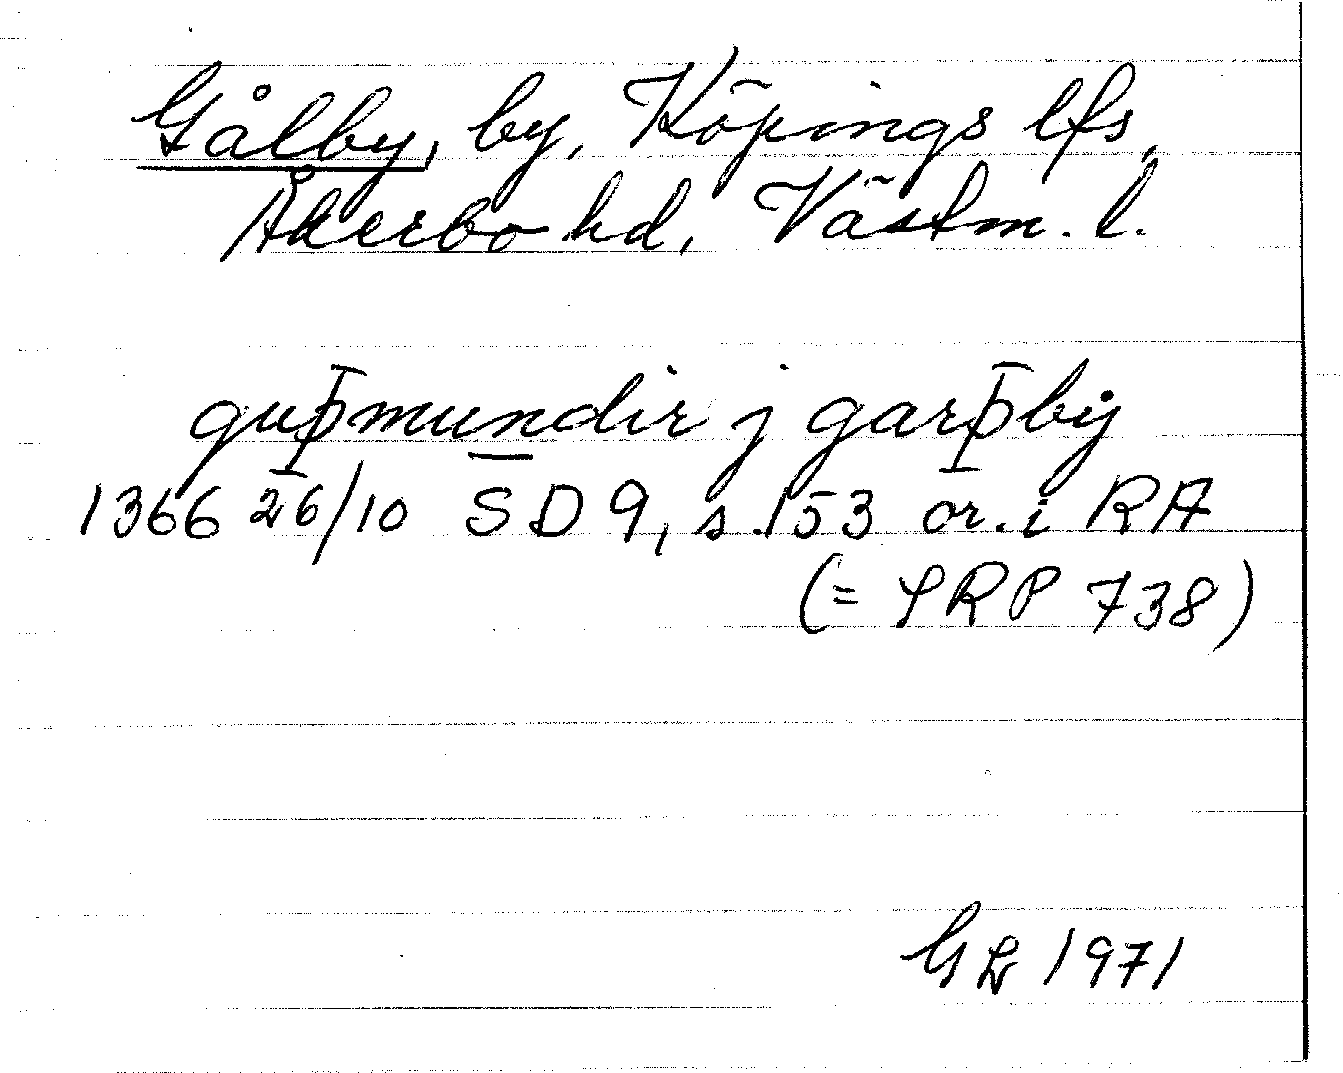 Gålby, by, Köpings lfs,
Åkerbo hd, Västm. l.
guþmundir j garþby
1366 26/10 SD 9, s. 153 or. i RA
(= SRP 738)
GL 1971